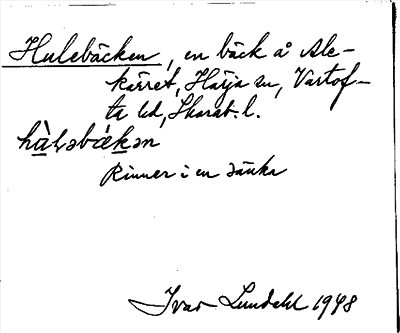 Hulebäcken, en bäck å Ale-
kärret, Härja sn, Vartof-
ta hd, Skarab. l.
hùləbækən
Rinner i en sänka
Ivar Lundahl 1948